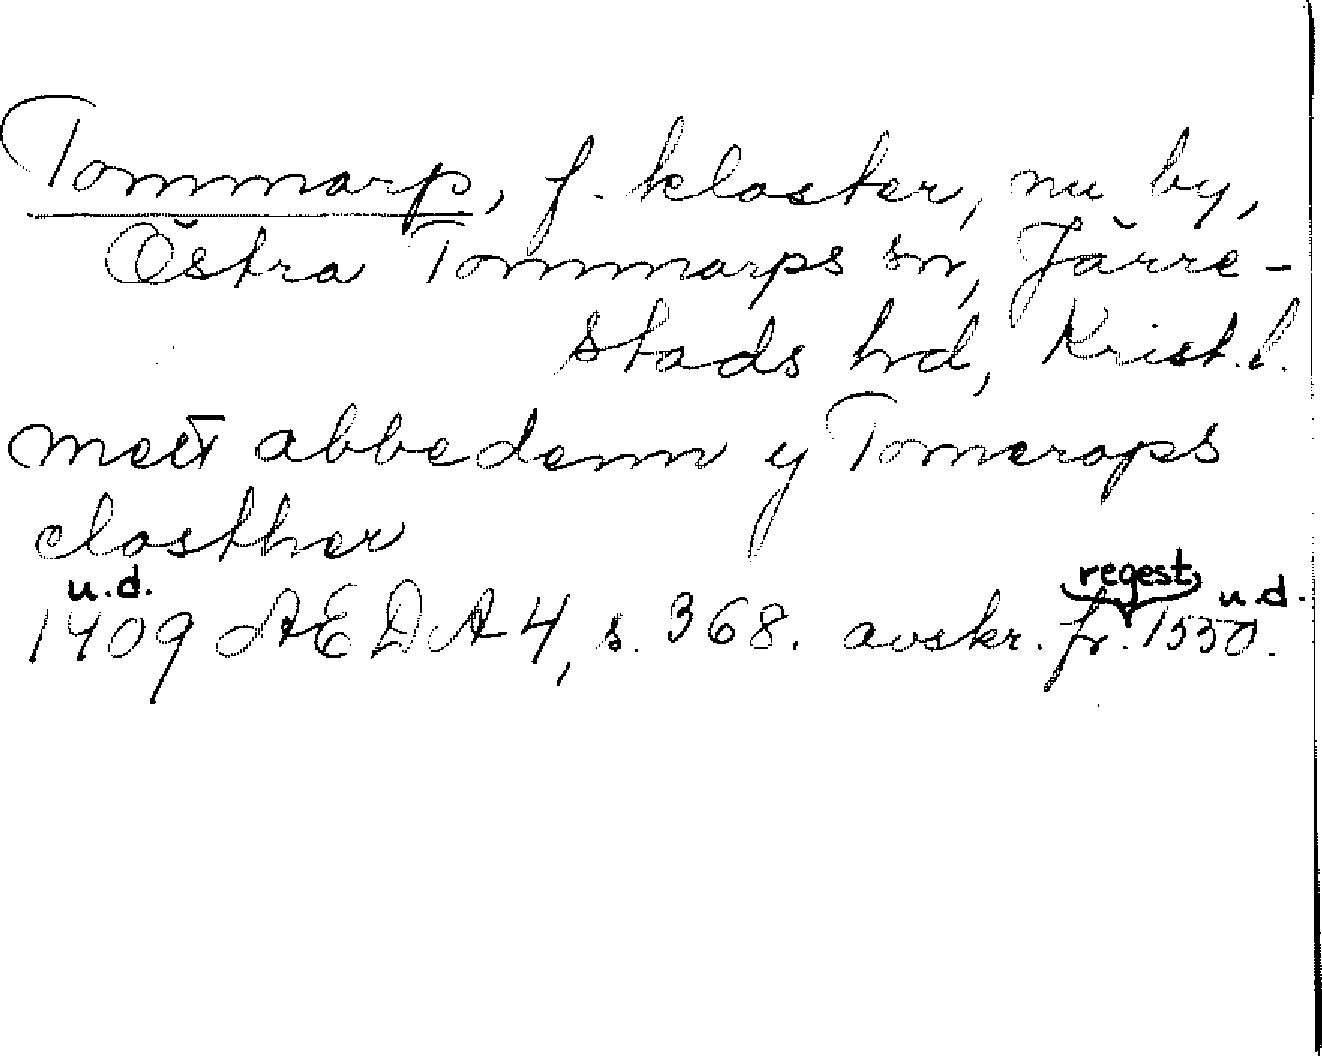 Tommarp, f. kloster, nu by,
Östra Tommarps sn, Järre-
stads hd, Krist.l.
mett abbedenn y Tomerops
closther
u.d. regest u.d.
1409 AEDA 4, s. 368. avskr. fr. 1550.